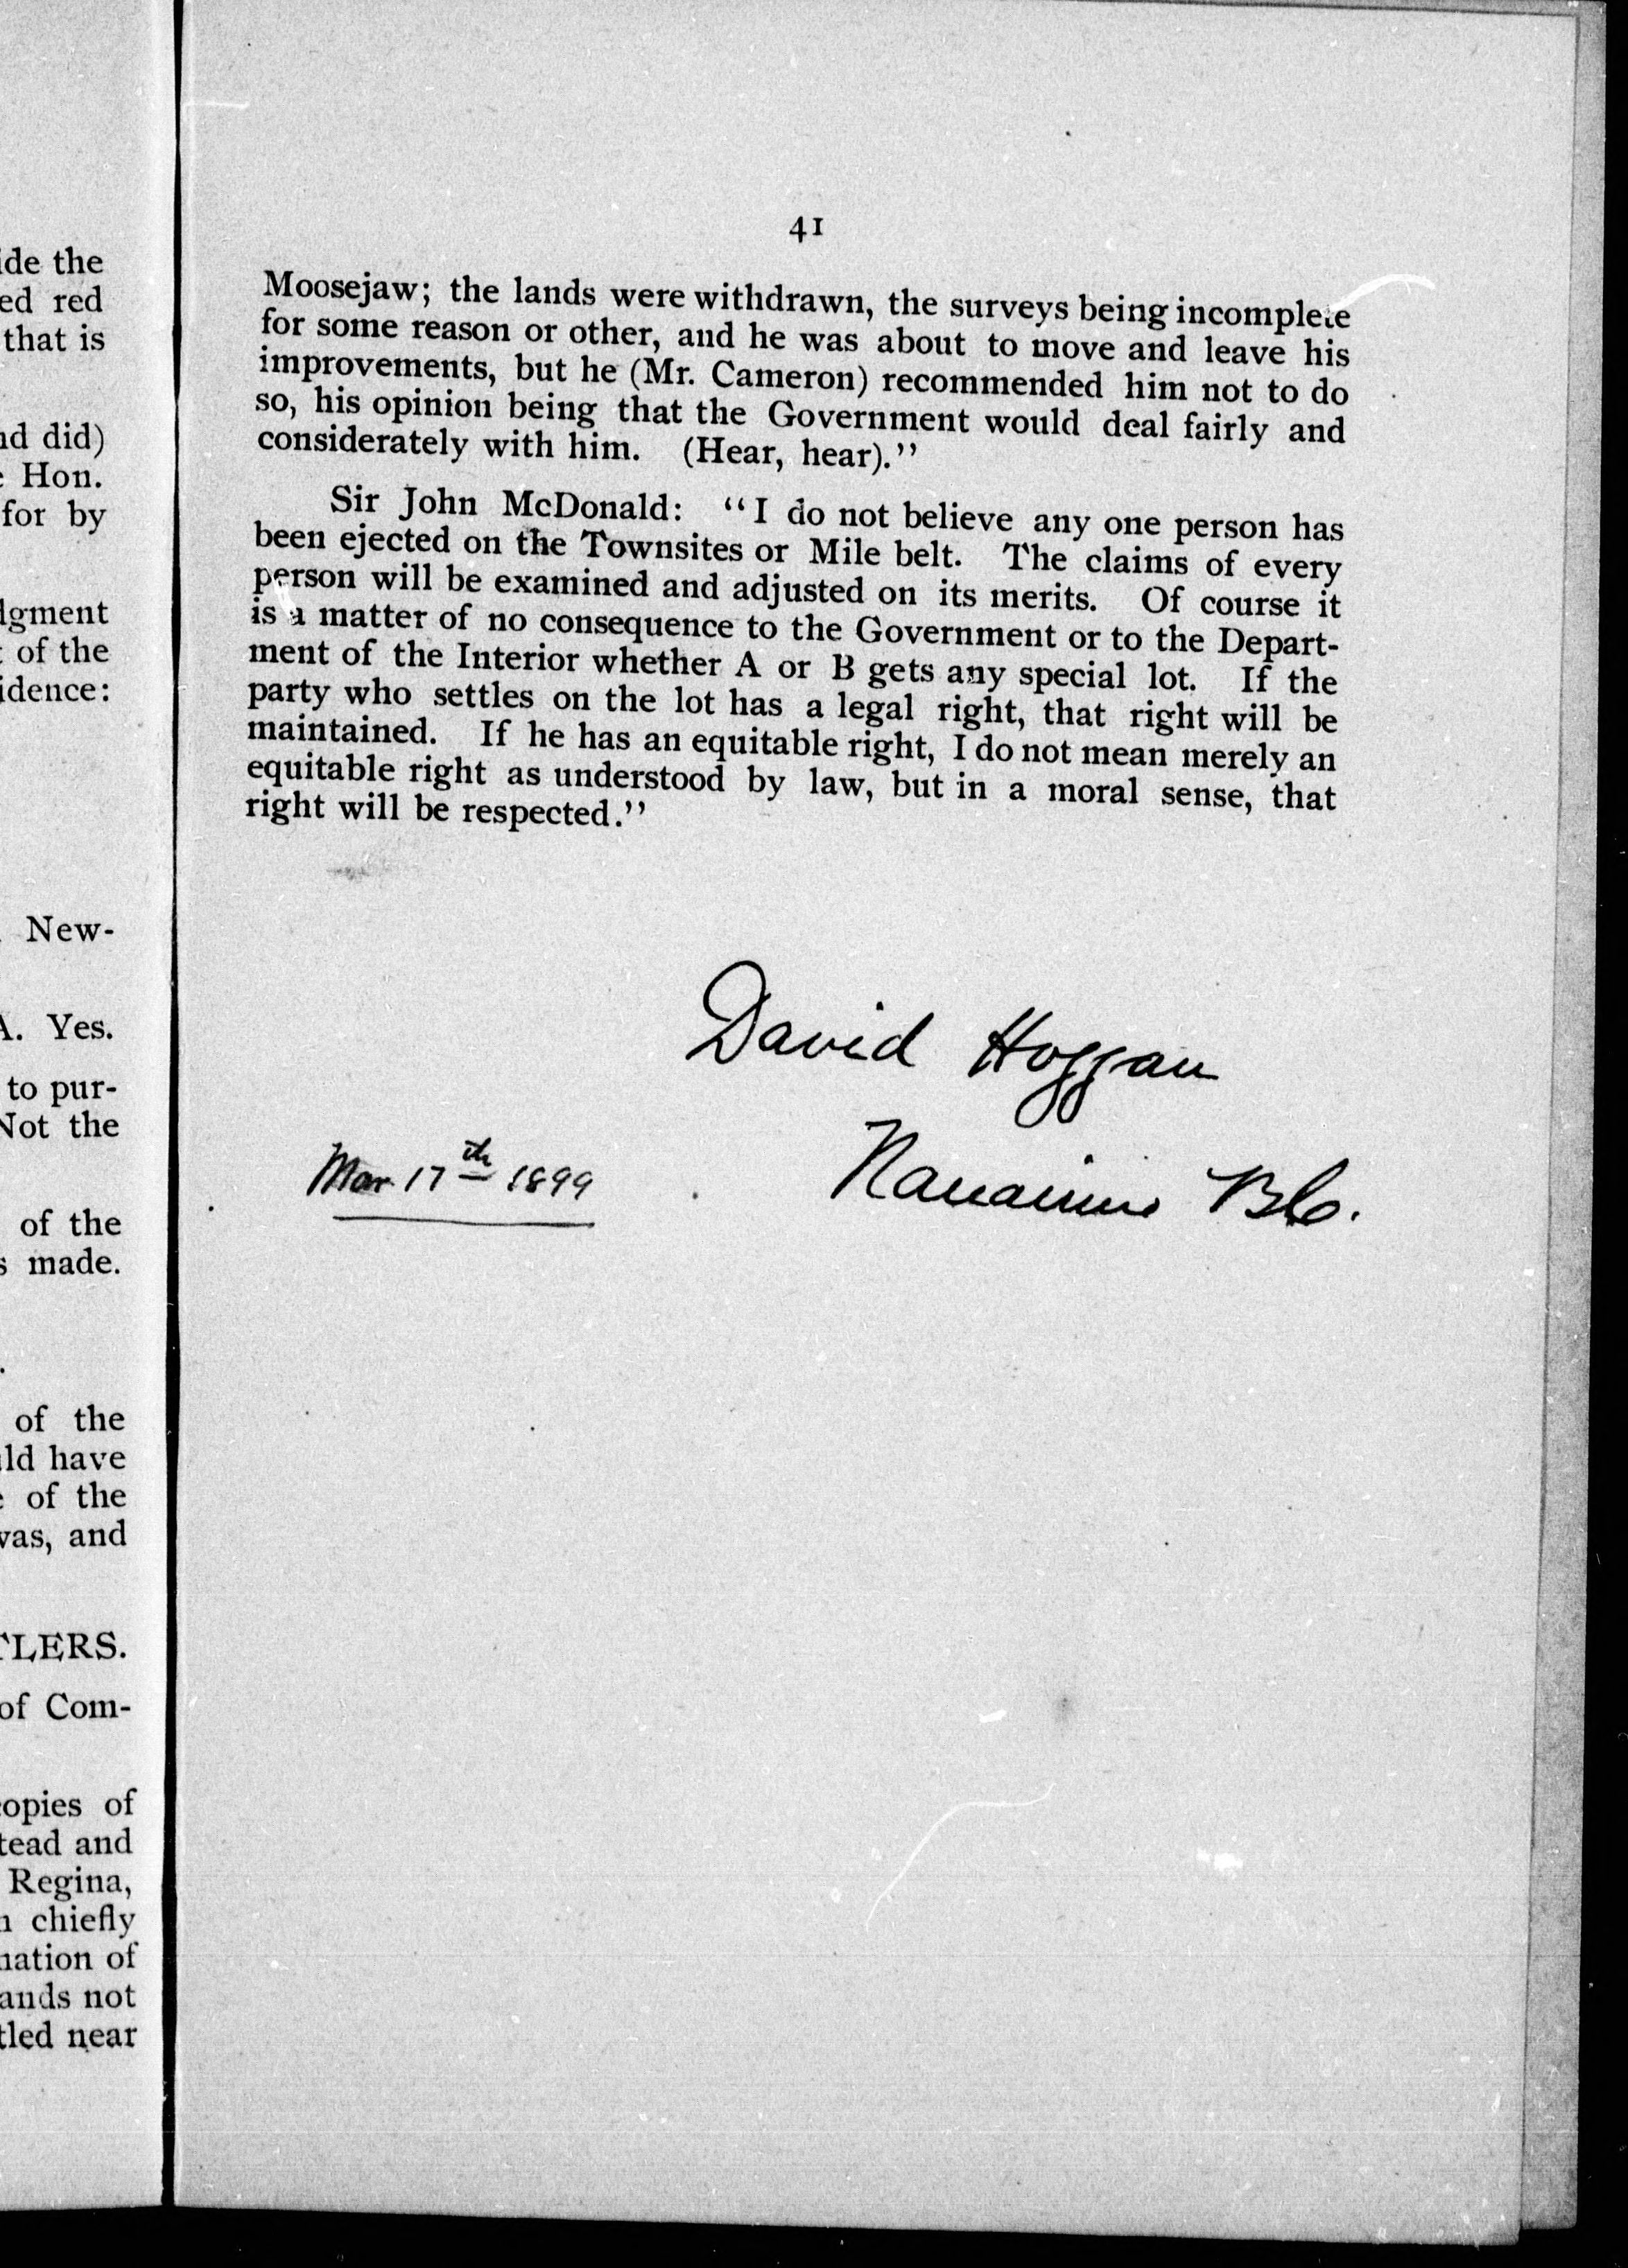 ide the
ed red
that is
nd did)
Hon.
for by
dgment
of the
idence:
New-
A. Yes.
to pur-
Not the
of the
s made.
of the
ld have
of the
was, and
TLERS.
of Com-
copies of
tead and
Regina,
n chiefly
nation of
ands not
tled near
41
Moosejaw; the lands were withdrawn, the surveys being incomplete
for some reason or other, and he was about to move and leave his
improvements, but he (Mr. Cameron) recommended him not to do
so, his opinion being that the Government would deal fairly and
considerately with him. (Hear, hear)."
Sir John McDonald: "I do not believe any one person has
been ejected on the Townsites or Mile belt. The claims of every
person will be examined and adjusted on its merits. Of course it
is a matter of no consequence to the Government or to the Depart-
ment of the Interior whether A or B gets any special lot. If the
party who settles on the lot has a legal right, that right will be
maintained. If he has an equitable right, I do not mean merely an
equitable right as understood by law, but in a moral sense, that
right will be respected."
David Hoggan
Mar 17th 1899
Nanaimo BC.